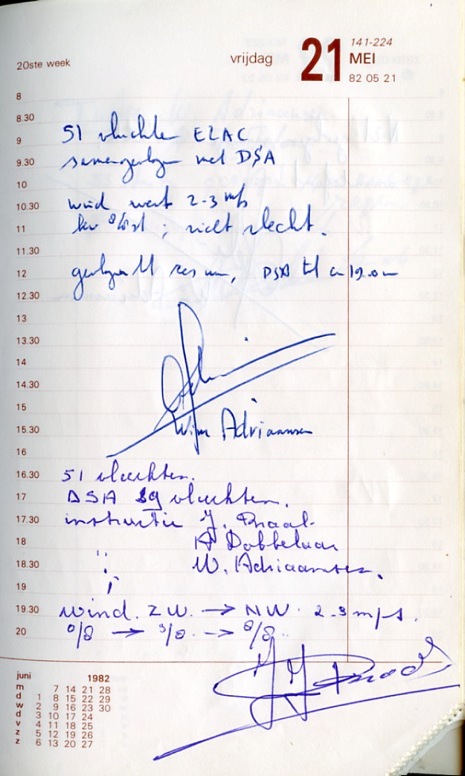 20ste week
vrijdag 21 MEI
141-224
82 05 21
8
8.30
9 51 vluchten EZAC
9.30 samengevlogen met DSA
10
10.30 wind west 2-3 m/s
11 zicht slecht.
11.30
12 gevlogen tot DSA tot 19.00
12.30
13
13.30
14
14.30
15
15.30 Adriaansen
16
16.30 51 vluchten.
17 DSA 59 vluchten.
17.30 instructie J. Praal
18 A Dobbelaar
18.30 " W. Adriaansen.
19
19.30 wind. ZW. → NW. 2-3 m/s.
20 0/8 → 3/8 → 8/8.
juni 1982
m 7 14 21 28
d 1 8 15 22 29
w 2 9 16 23 30
d 3 10 17 24
v 4 11 18 25
z 5 12 19 26
z 6 13 20 27